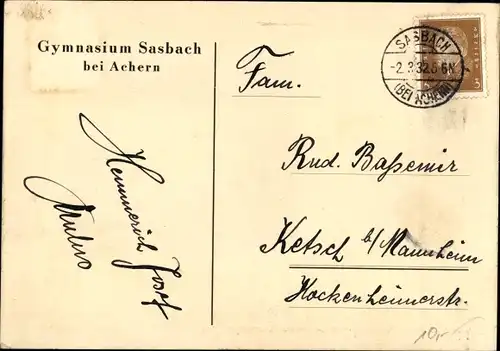 Gymnasium Sasbach
bei Achern
Heinrich Josef
Fam.
Rud. Baßemir
Ketsch b/Mannheim
Hockenheimerstr.
SASBACH
-2.3.32.5-6N
(BEI ACHERN)
3
10,-